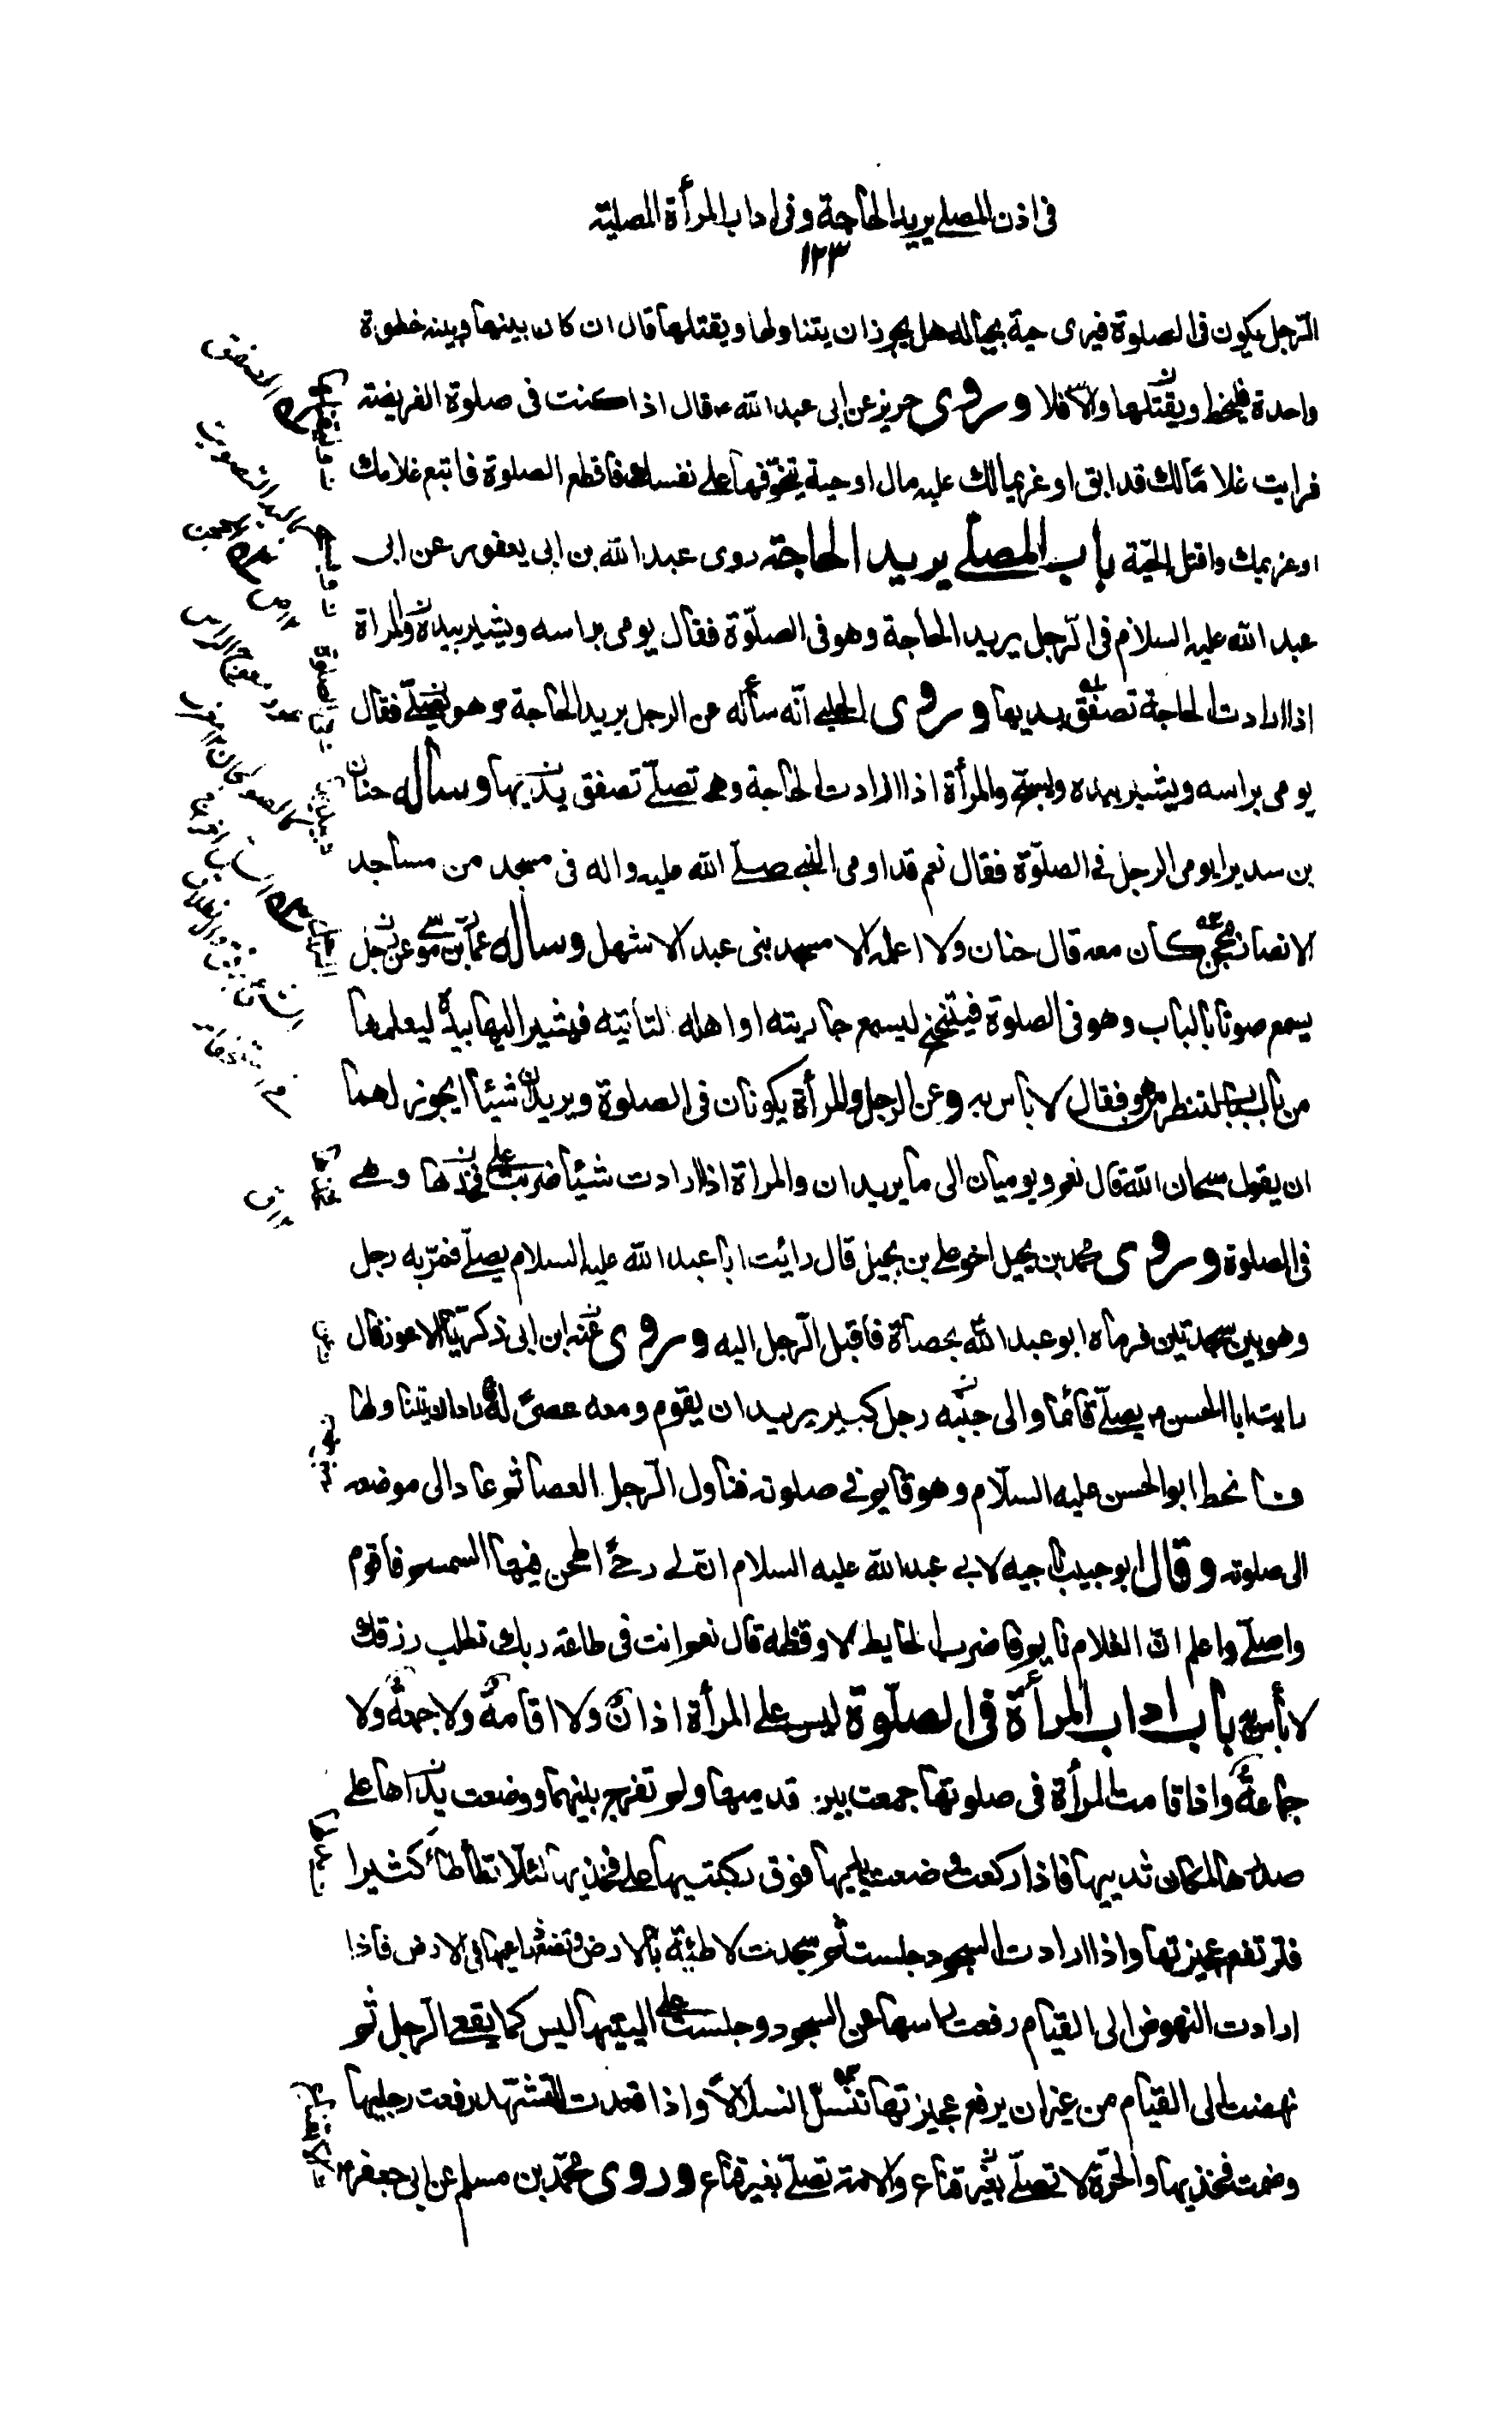 فى اذن المصلى يريد الحاجة وفى اداب المرأة المصلية
١٢٣
الرّجل يكون فى الصلوة فيرى حية بحياله هل يجوز ان يتناولها ويقتلها قال ان كان بينها وبينه خطوة
واحدة فليخط ويقتلها والّا فلا وروى حريز عن ابى عبد الله ع قال اذا كنت فى صلوة الفريضة
فرايت غلامًا لك قد ابق او غريما لك عليه مال او حية تتخوّفها على نفسك فاقطع الصلوة فاتبع غلامك
او غريمك واقتل الحيّة باب المصلى يريد الحاجة روى عبد الله بن ابى يعفور عن ابى
عبد الله عليه السلام فى الرّجل يريد الحاجة وهو فى الصلوة فقال يومى براسه ويشير بيده والمراة
اذا ارادت الحاجة تصفق بيديها وروى الحلبى انّه سأله عن الرجل يريد الحاجة وهو يصلّى فقال
يومى براسه ويشير بيده ويسبّح والمرأة اذا ارادت الحاجة وهى تصلّى تصفق بيديها وساله حنان
بن سدير ايومى الرجل فى الصلوة فقال نعم قد اومى النبى صلى الله عليه واله فى مسجد من مساجد
الانصار بمحجن كان معه قال حنان ولا اعلمه الا مسجد بنى عبد الاشهل وساله عمار بن موسى عن رجل
يسمع صوتا بالباب وهو فى الصلوة فيتنحنح ليسمع جاريته او اهله لتاتيه فيشير اليها بيده ليعلمها
من بالباب لتنظر من هو فقال لا باس به وعن الرجل والمرأة يكونان فى الصلوة ويريدان شيئا ايجوز لهما
ان يقولا سبحان الله قال نعم ويوميان الى ما يريدان والمراة اذا ارادت شيئا ضربت على فخذها وهى
فى الصلوة وروى محمد بن بجيل اخو على بن بجيل قال رايت ابا عبد الله عليه السلام يصلّى فمرّ به رجل
وهو بين سجدتين فرماه ابو عبد الله بحصاة فاقبل الرّجل اليه وروى عنه ابن ابى زكريّا الاعور قال
رايت ابا الحسن ع يصلّى قائما والى جنبه رجل كبير يريد ان يقوم ومعه عصىً له فاراد ان يتناولها
فانحط ابو الحسن عليه السلام وهو قايم فى صلوته فناول الرّجل العصا ثم عاد الى موضعه
الى صلوته وقال ابو حبيب ناجيه لابى عبد الله عليه السلام انّ لى رحىً اطحن فيها السمسم فاقوم
واصلّى واعلم انّ الغلام نايم فاضرب الحايط لاوقظه قال نعم انت فى طاعة ربك تطلب رزقك
لا بأس به باب اداب المرأة فى الصلوة ليس على المرأة اذان ولا اقامة ولا جمعة ولا
جماعة واذا قامت المرأة فى صلوتها جمعت بين قدميها ولم تفرج بينهما ووضعت يديها على
صدرها لمكان ثدييها فاذا ركعت وضعت يديها فوق ركبتيها على فخذيها لئلّا تطأطأ كثيرا
فترتفع عجيزتها واذا ارادت السجود جلست ثم سجدت لاطئة بالارض وتضع ذراعيها فى الارض فاذا
ارادت النهوض الى القيام رفعت راسها من السجود وجلست على اليتيها ليس كما يقعى الرّجل ثم
نهضت الى القيام من غير ان يرفع عجيزتها تنسل انسلالا واذا قعدت للتشهّد رفعت رجليها
وضمت فخذيها والحرّة لا تصلّى بغير قناع والامة تصلّى بغير قناع وروى محمّد بن مسلم عن ابى جعفر ع